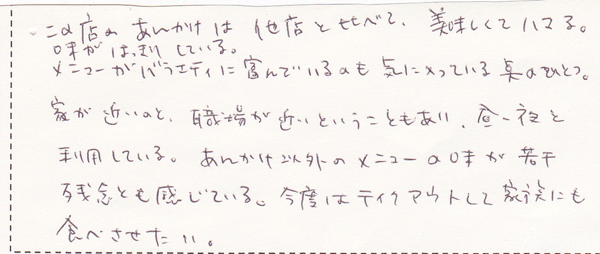 この店のあんかけは他店と比べて、美味しくてハマる。
味がはっきりしている。
メニューがバラエティに富んでいるのも気に入っている点のひとつ。
家が近いのと、職場が近いということもあり、昼・夜と
利用している。あんかけ以外のメニューの味が若干
残念とも感じている。今度はテイクアウトして家族にも
食べさせたい。